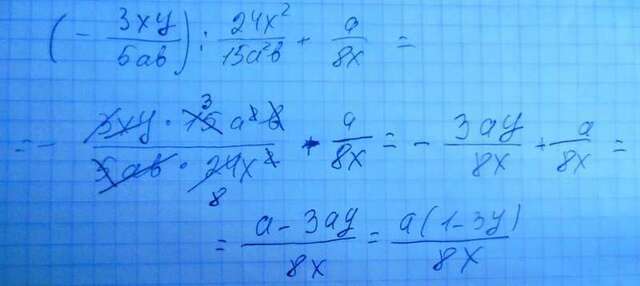 (- 3xy/5ab) : 24x²/15a²b + a/8x =
= - 3xy · 15a²b / 5ab · 24x² + a/8x = - 3ay/8x + a/8x =
= a - 3ay / 8x = a(1-3y) / 8x